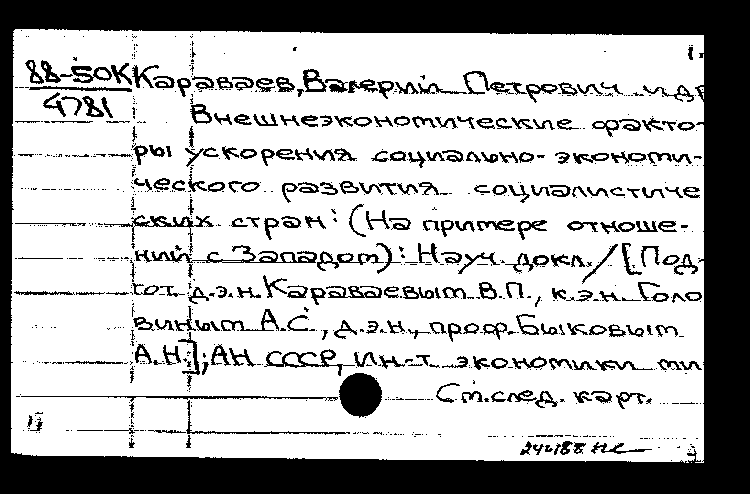 88-50К Караваев, Валерий Петрович и др
4781
Внешнеэкономические факто-
ры ускорения социально-экономи-
ческого развития социалистиче
ских стран: (На примере отноше-
ний с Западом): Науч. докл. / [Под-
гот. д.э.н. Караваевым В.П., к.э.н. Голо
виным А.С., д.э.н., проф. Быковым
А.Н.]; АН СССР, Ин-т экономики ми
См. след. карт.